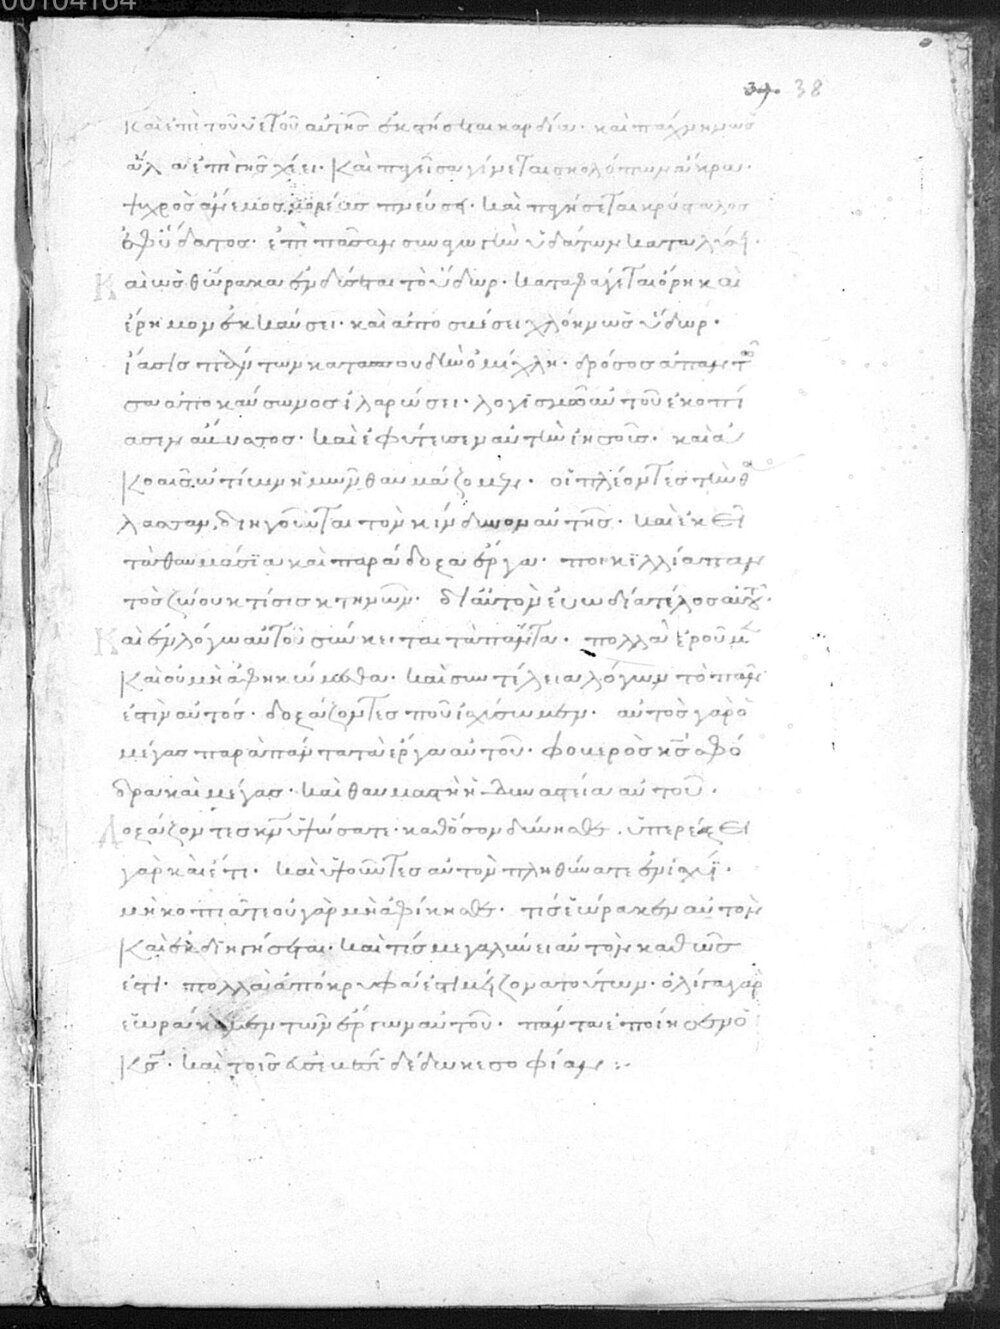 00104164
38
Καὶ ἐπὶ τοῦ ὑετοῦ αὐτῆς ἐκστήσεται καρδία· καὶ πάχνην ὡς
ἅλα ἐπὶ γῆς χέει· Καὶ παγεῖσα γίνεται σκολόπων ἄκρα·
ψυχρὸς ἄνεμος βορέας πνεύσει· καὶ παγήσεται κρύσταλος
ἐφ' ὕδατος· ἐπὶ πᾶσαν συναγωγὴν ὑδάτων καταλύσει·
Καὶ ὡς θώρακα ἐνδύσεται τὸ ὕδωρ· καταφάγεται ὄρη καὶ
ἔρημον ἐκκαύσει· καὶ ἀποσβέσει χλόην ὡς ὕδωρ·
ἴασις πάντων κατὰ σπουδὴν ὁμίχλη· δρόσος ἀπαντῶ
σα ἀπὸ καύσωνος ἱλαρώσει· λογισμῶ αὐτοῦ ἐκόπα
σεν ἄβυσσος· καὶ ἐφύτευσεν αὐτὴν ἰησοῦς· καὶ ἀ
Κοαῖς ὠτίων ἡμῶν θαυμάζομεν· οἱ πλέοντες τὴν θά
λασσαν, διηγοῦνται τὸν κίνδυνον αὐτῆς· καὶ ἐκεῖ
τὰ θαυμάσια καὶ παράδοξα ἔργα· ποικιλλία παν
τὸς ζώου κτίσις κτηνῶν· δι' αὐτὸν εὐωδία τέλος αὐτοῦ·
Καὶ ἐν λόγω αὐτοῦ σύνκειται τὰ πάντα· πολλὰ ἐροῦμεν
Καὶ οὐ μὴ ἀφηκώμεθα· καὶ συντέλεια λόγων τὸ πᾶν
ἐστὶν αὐτός· δοξάζοντες ποῦ ἰσχύσωμεν· αὐτὸς γὰρ ὁ
μέγας παρὰ πάντα τὰ ἔργα αὐτοῦ· φοβερὸς κς σφό
δρα καὶ μέγας· καὶ θαυμαστὴ ἡ δυναστεία αὐτοῦ·
Δοξάζοντες κν ὑψώσατε καθόσον δύνησθε· ὑπερέξει
γὰρ καὶ ἔτι· καὶ ὑψοῦντες αὐτὸν πληθύνατε ἐν ἰσχύϊ·
μὴ κοπιᾶτε οὐ γὰρ μὴ ἀφίκησθε· τίς ἑώρακεν αὐτὸν
Καὶ ἐκδιηγήσεται· καὶ τίς μεγαλύνει αὐτὸν καθώς
ἐστι· πολλὰ ἀπόκρυφά ἐστι μείζονα τούτων· ὀλίγα γὰρ
ἑωράκαμεν τῶν ἔργων αὐτοῦ· πάντα ἐποίησεν ὁ
Κς· καὶ τοῖς εὐσεβέσι δέδωκε σοφίαν :-